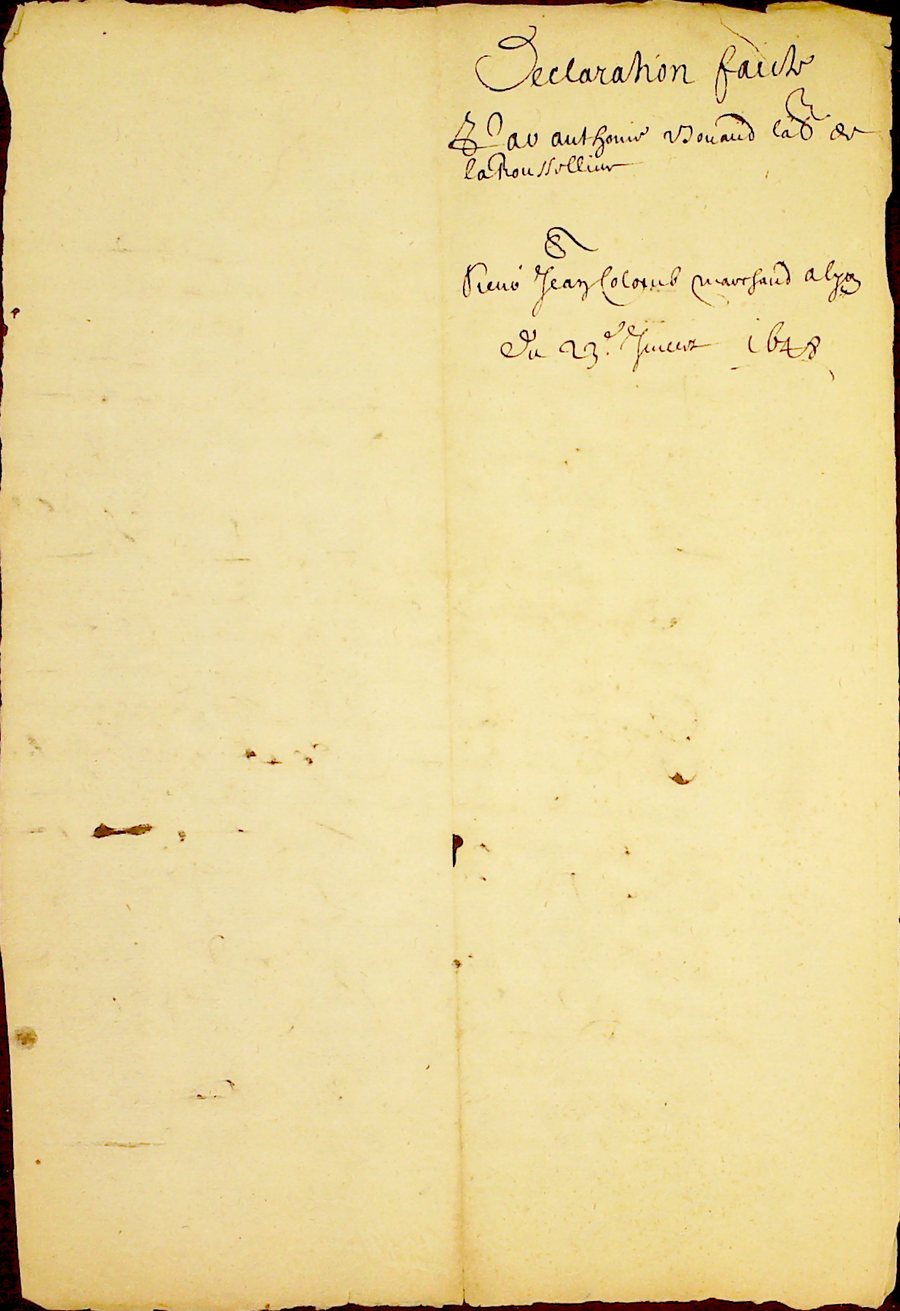 Declaration faicte
par anthoine Bonaud lab^r de
la Roussellier
&
Sieur Jean Colomb marchand a lyon
Du 23^e 1648